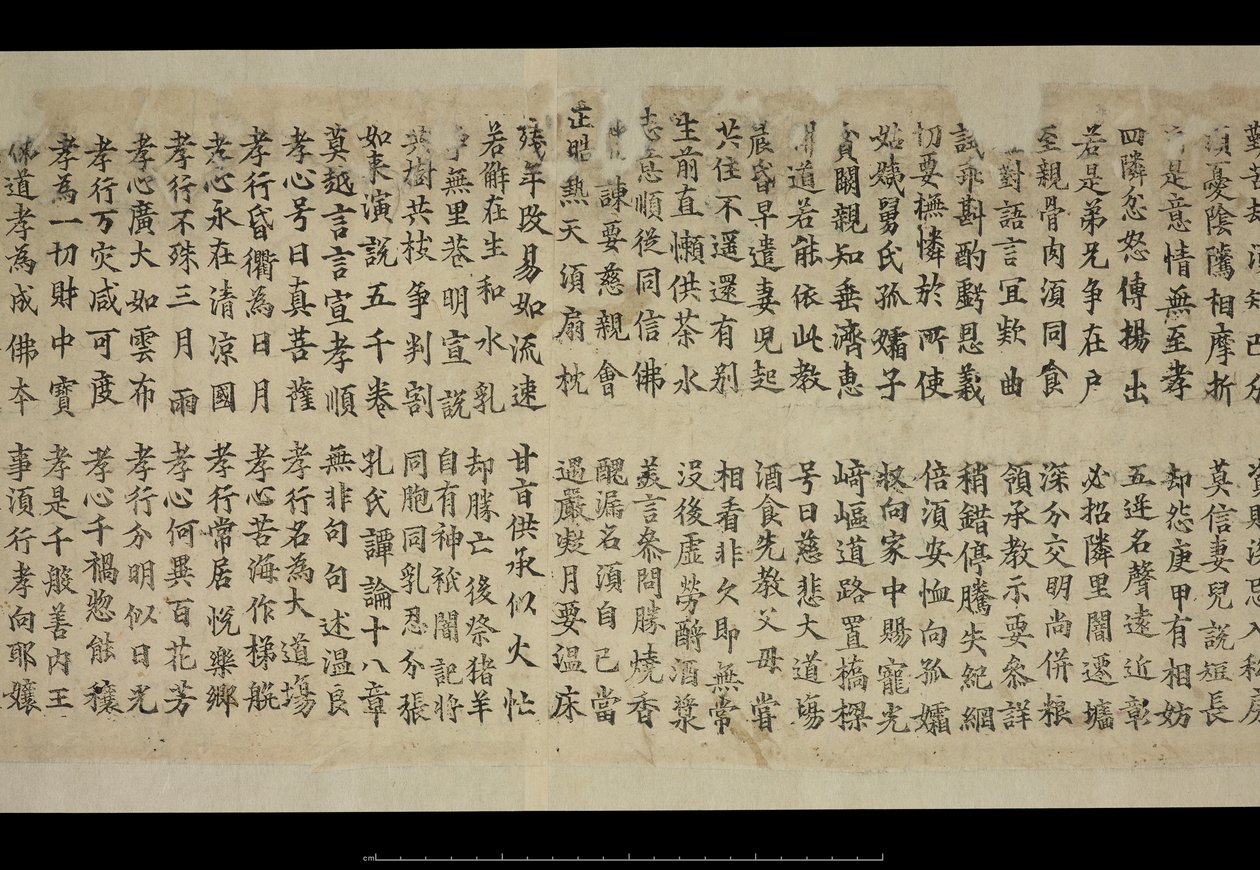 須憂陰騭相摩折 莫信妻兒說短長
是意情無至孝 却怨庚甲有相妨
四隣忿怒傳揚出 五逆名聲遠近彰
若是弟兄争在户 必招隣里闇遷墻
至親骨肉須同食 深分交明尚併粮
對語言冝欵曲 領承教示要叅詳
試飛斟酌虧恩義 稍錯停騰失紀綱
切要撫憐於所使 倍須安恤向孤孀
姑姨舅氏孤孀子 收向家中賜寵光
貧闕親知垂濟惠 﨑嶇道路置橋樑
道若能依此教 号曰慈悲大道塲
晨昏早遣妻兒起 酒食先教父母嘗
共住不遥還有别 相看非久即無常
生前直懶供茶水 没後虚勞酹酒漿
志意順從同信佛 美言叅問勝燒香
諫要慈親會 醜漏名須自己當
熱天須扇枕 遇嚴凝月要温床
殘年改易如流速 甘旨供承似火忙
若解在生和水乳 却勝亡後祭猪羊
無里巷明宣說 自有神祇闇記将
共樹共枝争判割 同胞同乳忍分張
如来演說五千卷 孔氏譚論十八章
莫越言言宣孝順 無非句句述温良
孝心号曰真菩薩 孝行名為大道塲
孝行昏衢為日月 孝心苦海作梯航
孝心永在清凉國 孝行常居悦樂鄉
孝行不殊三月雨 孝心何異百花芳
孝心廣大如雲布 孝行分明似日光
孝行万灾咸可度 孝心千禍惣能穰
孝為一切財中寳 孝是千般善内王
佛道孝為成佛夲 事須行孝向耶孃
cm